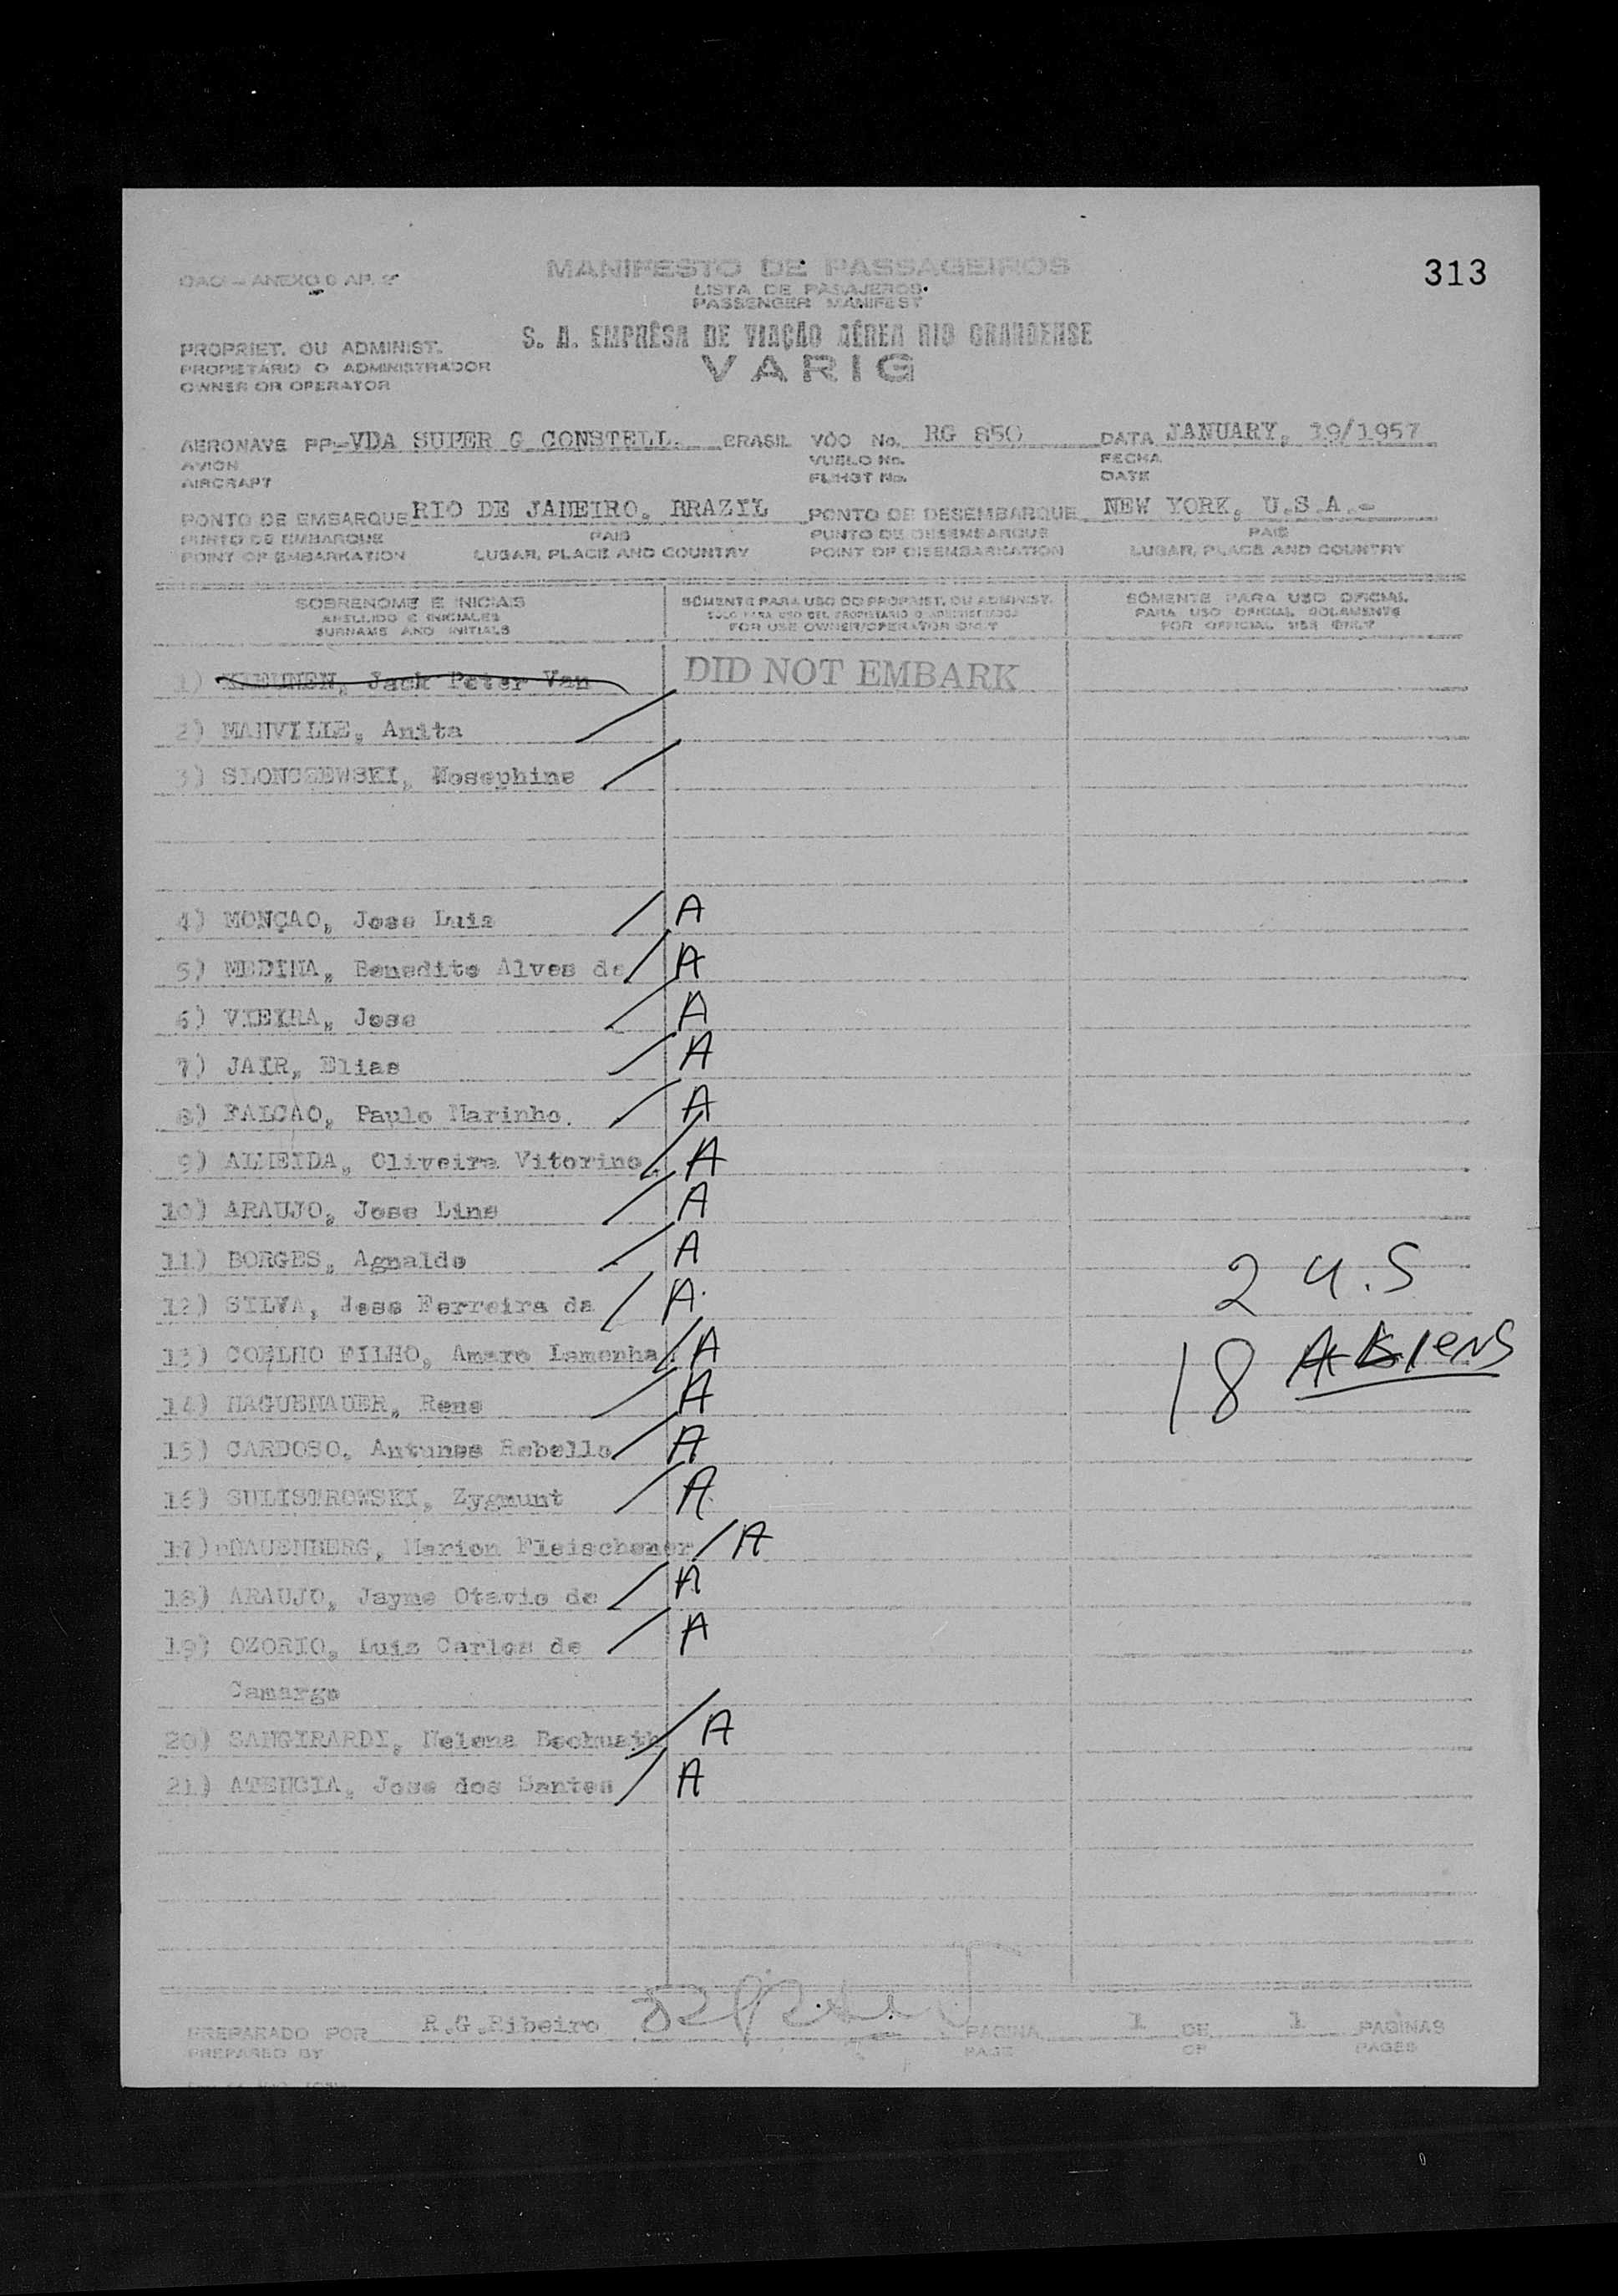 OACI - ANEXO 9 AP. 2
MANIFESTO DE PASSAGEIROS
313
LISTA DE PASAJEROS
PASSENGER MANIFEST
S. A. EMPRÊSA DE VIAÇÃO AÉREA RIO GRANDENSE
VARIG
PROPRIET. OU ADMINIST.
PROPIETARIO O ADMINISTRADOR
OWNER OR OPERATOR
AERONAVE PP-VDA SUPER G CONSTELL. BRASIL VÔO No. RG 850 DATA JANUARY, 19/1957
AVION VUELO No. FECHA
AIRCRAFT FLIHGT No. DATE
PONTO DE EMBARQUE RIO DE JANEIRO, BRAZIL PONTO DE DESEMBARQUE NEW YORK, U.S.A.-
PUNTO DE EMBARQUE PAIS PUNTO DE DESEMBARQUE PAIS
POINT OF EMBARKATION LUGAR, PLACE AND COUNTRY POINT OF DISEMBARKATION LUGAR, PLACE AND COUNTRY
SOBRENOME E INICIAIS SÓMENTE PARA USO DO PROPRIET. OU ADMINIST. SÓMENTE PARA USO OFICIAL
APELLIDO E INICIALES SOLO PARA USO DEL PROPIETARIO O ADMINISTRADOR PARA USO OFICIAL SOLAMENTE
SURNAME AND INITIALS FOR USE OWNER/OPERATOR ONLY FOR OFFICIAL USE ONLY
1) Jack Peter Van DID NOT EMBARK
2) MANVILLE, Anita
3) SLONCZEWSKI, Wosephine
4) MONÇAO, Jose Luiz A
5) MEDINA, Benedito Alves de A
6) VIEIRA, Jose A
7) JAIR, Elias A
8) FALCAO, Paulo Marinho. A
9) ALMEIDA, Oliveira Vitorino. A
10) ARAUJO, Jose Lins A
11) BORGES, Agnaldo A
12) SILVA, Jose Ferreira da A
2 U.S
13) COELHO FILHO, Amaro Lamenha. A
18 Aliens
14) HAGUENAUER, Rene A
15) CARDOSO, Antunes Rebello A
16) SULISTROWSKI, Zygmunt A
17) DAUENBERG, Marion Fleischener A
18) ARAUJO, Jayme Otavio de A
19) OZORIO, Luiz Carlos de A
Camargo
20) SANGIRARDI, Helena A
21) ATENCIA, Jose dos Santos A
PREPARADO POR R.G.Ribeiro PAGINA 1 DE 1 PAGINAS
PREPARED BY PAJE OF PAGES